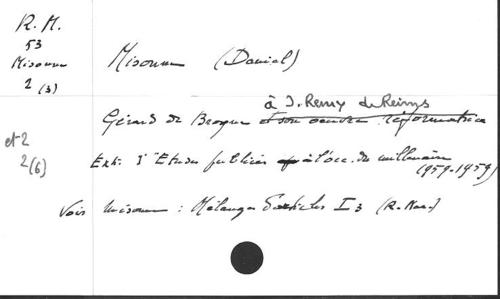 R. M.
53
Misonne
2 (3)
et 2
2(6)
Misonne (Daniel)
à S. Remy de Reims
Gérard de Brogne et son oeuvre réformatrice
Extr. d'Etudes publiées à l'occ. du millénaire
(959-1959)
Voir Misonne : Mélanges d'articles I 3 (R. Mon.)